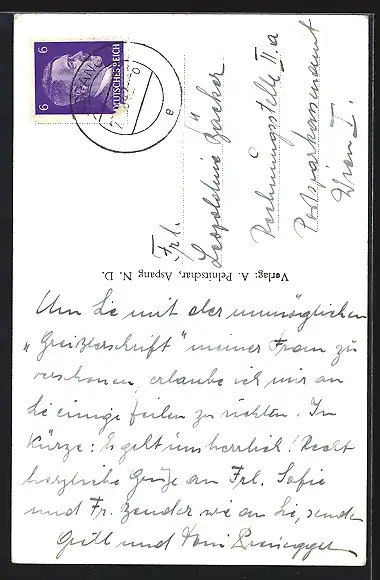 6 6
DEUTSCHES REICH
Frl.
Leopoldine Zucker
Rechnungsstelle II.a
Postsparkassenamt
Wien I.
Verlag: A. Pelnitschar, Aspang N. D.
Um Sie mit der unmöglichen
„Greizlerschrift" meiner Frau zu
verschonen, erlaube ich mir an
Sie einige Zeilen zu richten. In
Kürze: Es geht uns herrlich! Recht
herzliche Grüße an Frl. Sofie
und Fr. Zender wie an Sie, senden
Gretl und Toni